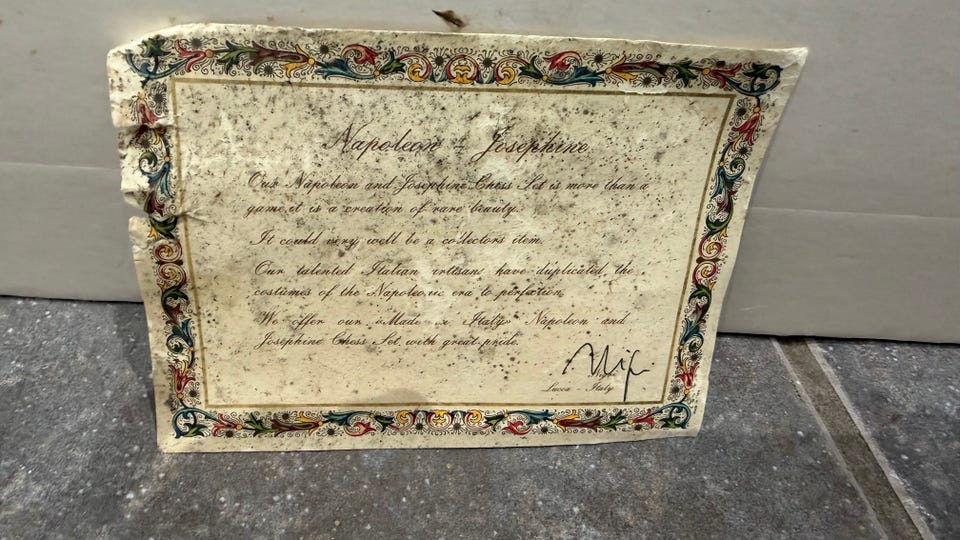 Napoleon - Josephine
Our Napoleon and Josephine Chess Set is more than a
game, it is a creation of rare beauty.
It could very well be a collectors item.
Our talented Italian artisans have duplicated the
costumes of the Napoleonic era to perfection.
We offer our «Made in Italy» Napoleon and
Josephine Chess Set with great pride.
Lucca - Italy